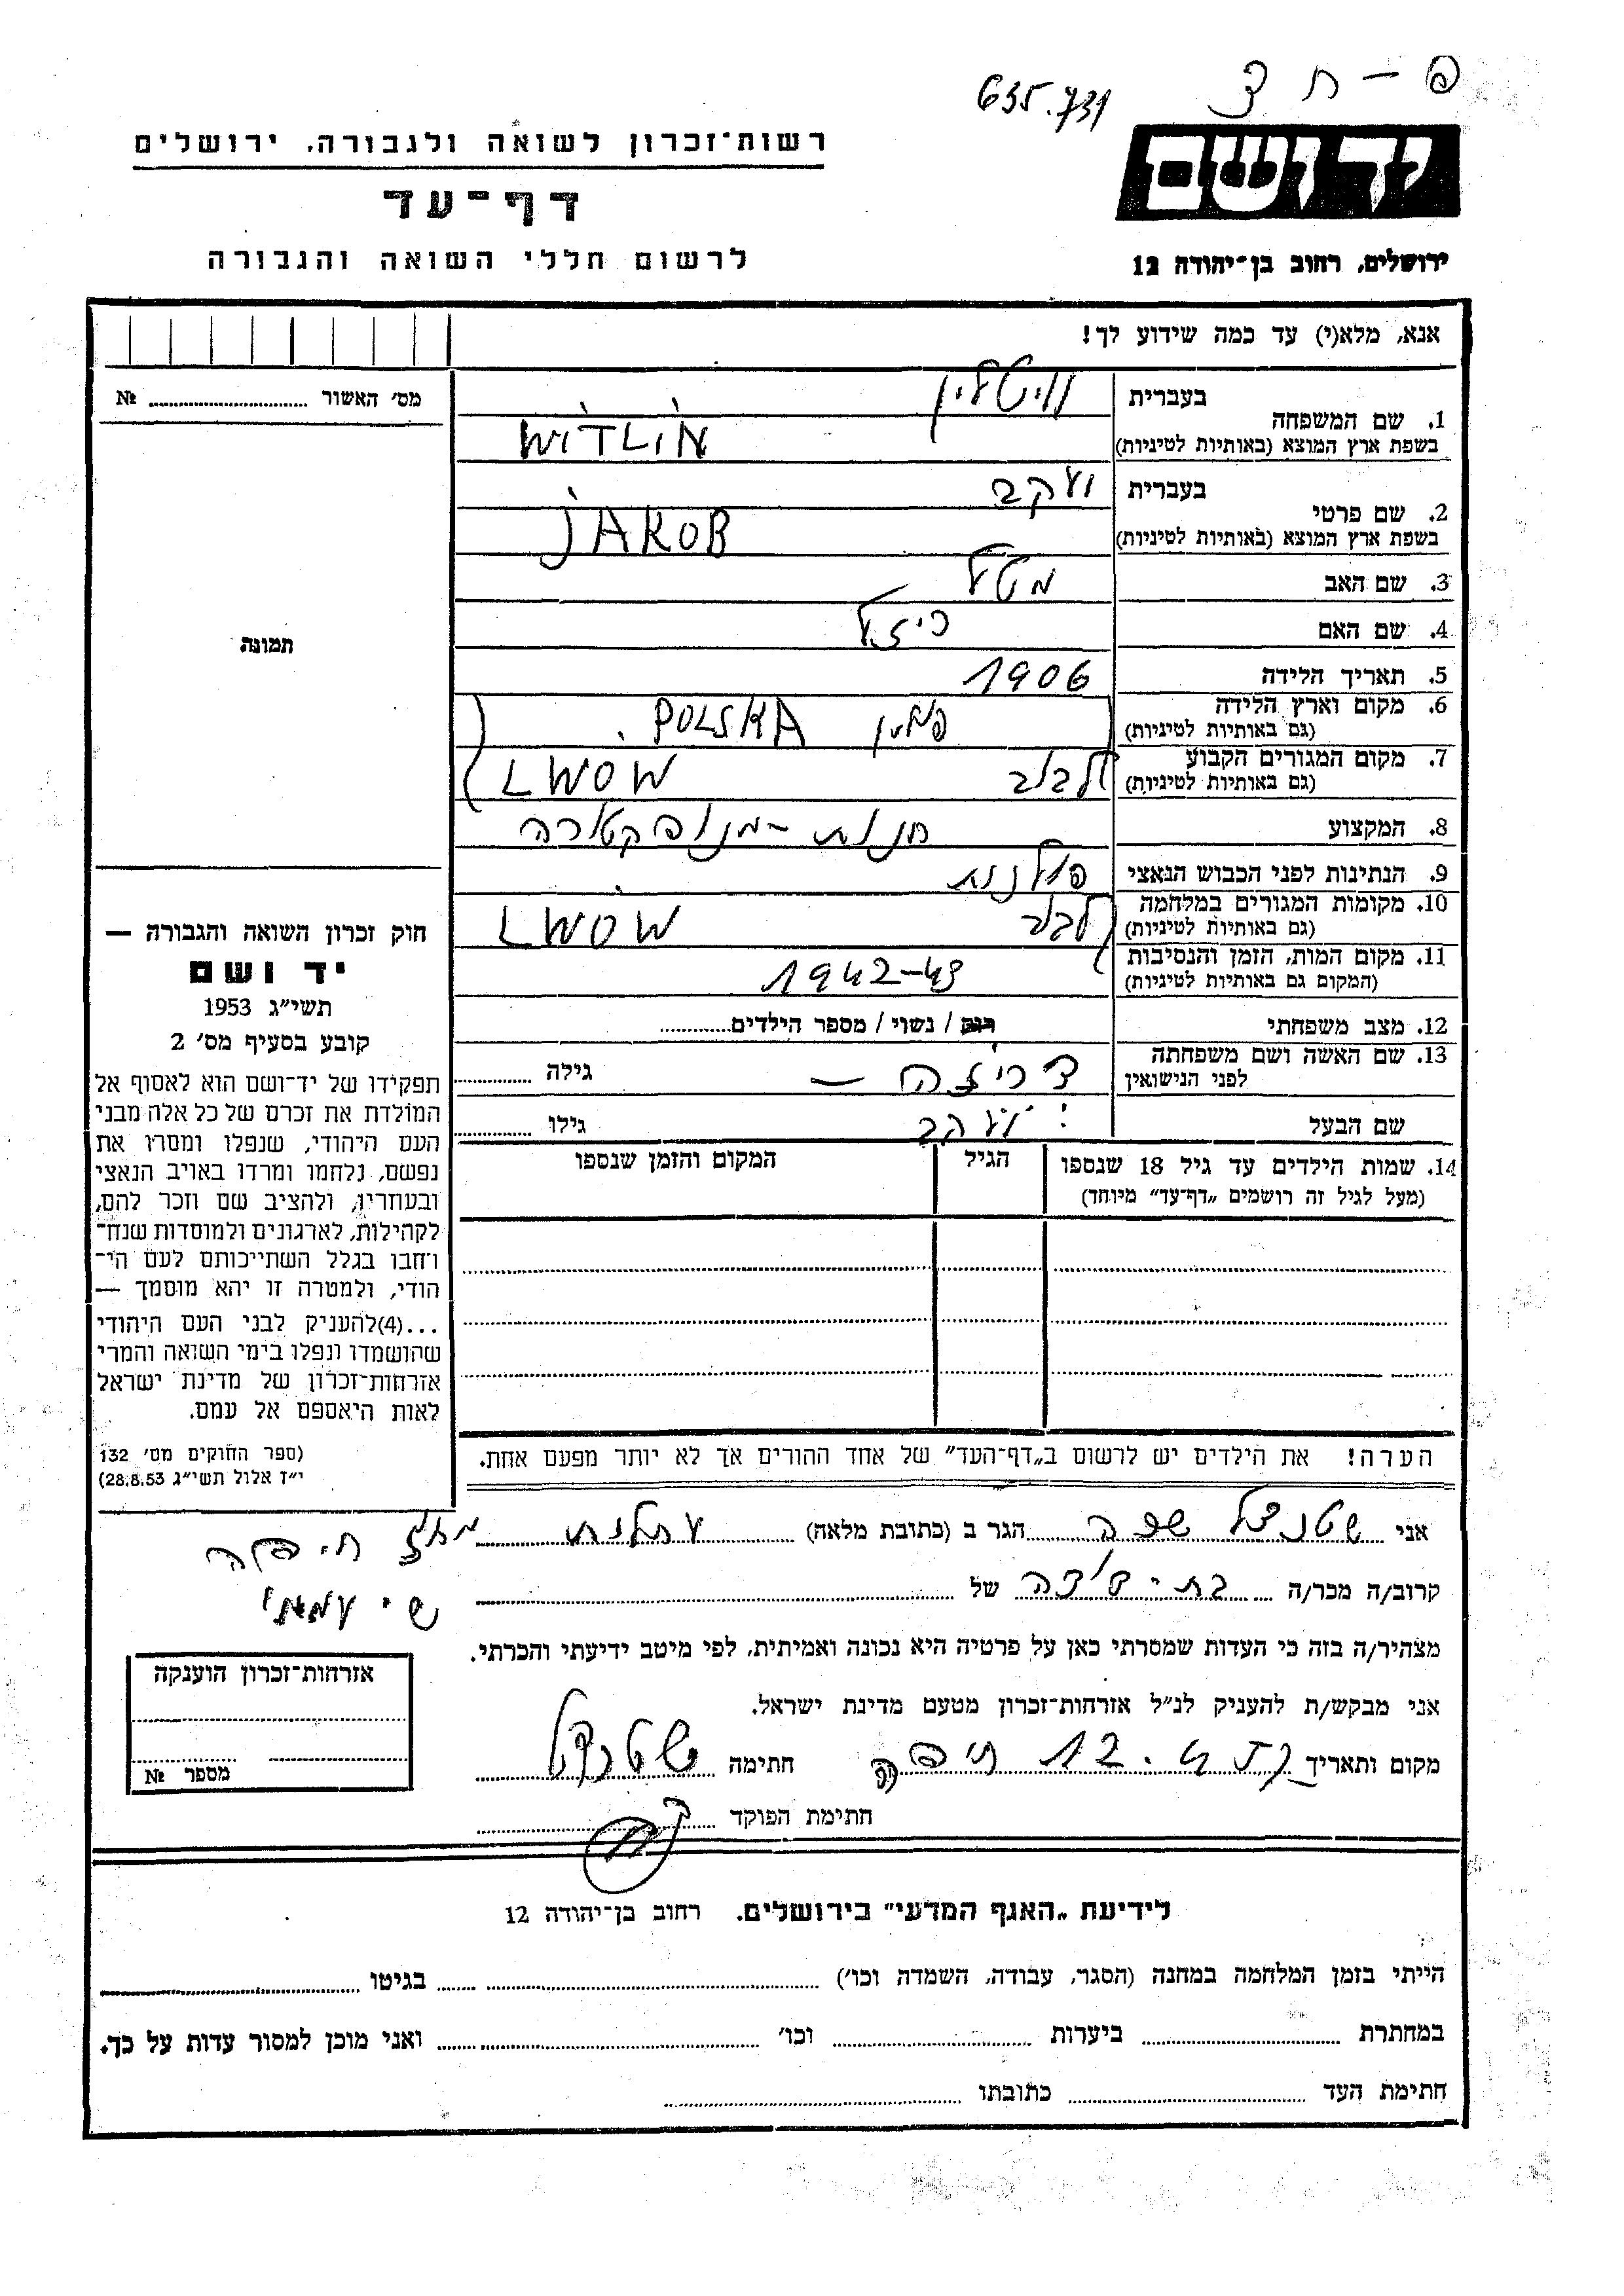 פ - ח צ
635.731
יד ושם
ירושלים, רחוב בן־יהודה 12
רשות־זכרון לשואה ולגבורה, ירושלים
דף־עד
לרשום חללי השואה והגבורה
אנא, מלא(י) עד כמה שידוע לך!
מס׳ האשור № 
תמונה
1. שם המשפחה
בעברית וויטלין
בשפת ארץ המוצא (באותיות לטיניות) WITLIN
2. שם פרטי
בעברית יעקב
בשפת ארץ המוצא (באותיות לטיניות) JAKOB
3. שם האב מטל
4. שם האם רייזל
5. תאריך הלידה 1906
6. מקום וארץ הלידה
(גם באותיות לטיניות) פולין POLSKA
7. מקום המגורים הקבוע
(גם באותיות לטיניות) לבוב LWOW
8. המקצוע חנות - מנופקטורה
9. הנתינות לפני הכבוש הנאצי פולנית
10. מקומות המגורים במלחמה
(גם באותיות לטיניות) לבוב LWÓW
11. מקום המות, הזמן והנסיבות
(המקום גם באותיות לטיניות) 1942-43
12. מצב משפחתי רווק / נשוי / מספר הילדים
13. שם האשה ושם משפחתה
לפני הנישואין גילה
שם הבעל יעקב גילו
14. שמות הילדים עד גיל 18 שנספו
(מעל לגיל זה רושמים „דף־עד” מיוחד)
הגיל
המקום והזמן שנספו
הערה! את הילדים יש לרשום ב„דף־העד” של אחד ההורים אך לא יותר מפעם אחת.
חוק זכרון השואה והגבורה —
יד ושם
תשי״ג 1953
קובע בסעיף מס׳ 2
תפקידו של יד־ושם הוא לאסוף אל
המולדת את זכרם של כל אלה מבני
העם היהודי, שנפלו ומסרו את
נפשם, נלחמו ומרדו באויב הנאצי
ובעוזריו, ולהציב שם וזכר להם,
לקהילות, לארגונים ולמוסדות שנח־
רבו בגלל השתייכותם לעם הי־
הודי, ולמטרה זו יהא מוסמך —
...(4)להעניק לבני העם היהודי
שהושמדו ונפלו בימי השואה והמרי
אזרחות־זכרון של מדינת ישראל
לאות היאספם אל עמם.
(ספר החוקים מס׳ 132
י״ז אלול תשי״ג 28.8.53)
אני שטנצל הגר ב (כתובת מלאה) עתלית חיפה
קרוב/ה מכר/ה בת-דודה של
מצהיר/ה בזה כי העדות שמסרתי כאן על פרטיה היא נכונה ואמיתית, לפי מיטב ידיעתי והכרתי.
אני מבקש/ת להעניק לנ״ל אזרחות־זכרון מטעם מדינת ישראל.
מקום ותאריך 12 חיפה חתימה שטנצל
חתימת הפוקד
אזרחות־זכרון הוענקה
מספר №
לידיעת „האגף המדעי” בירושלים. רחוב בן־יהודה 12
הייתי בזמן המלחמה במחנה (הסגר, עבודה, השמדה וכו׳) בגיטו
במחתרת ביערות וכו׳ ואני מוכן למסור עדות על כך.
חתימת העד כתובתו